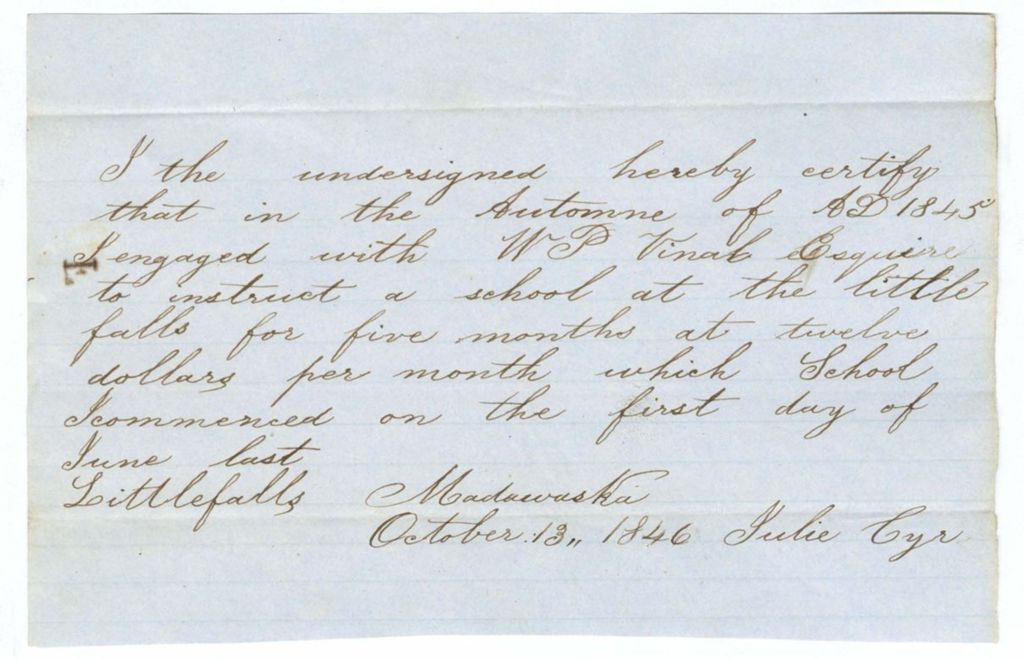 I the undersigned hereby certify
that in the Automne of AD 1845
I engaged with WP Vinal Esquire
to instruct a school at the little
falls for five months at twelve
dollars per month which School
I commenced on the first day of
June last
Littlefalls Madawaska
October 13,, 1846 Julie Cyr